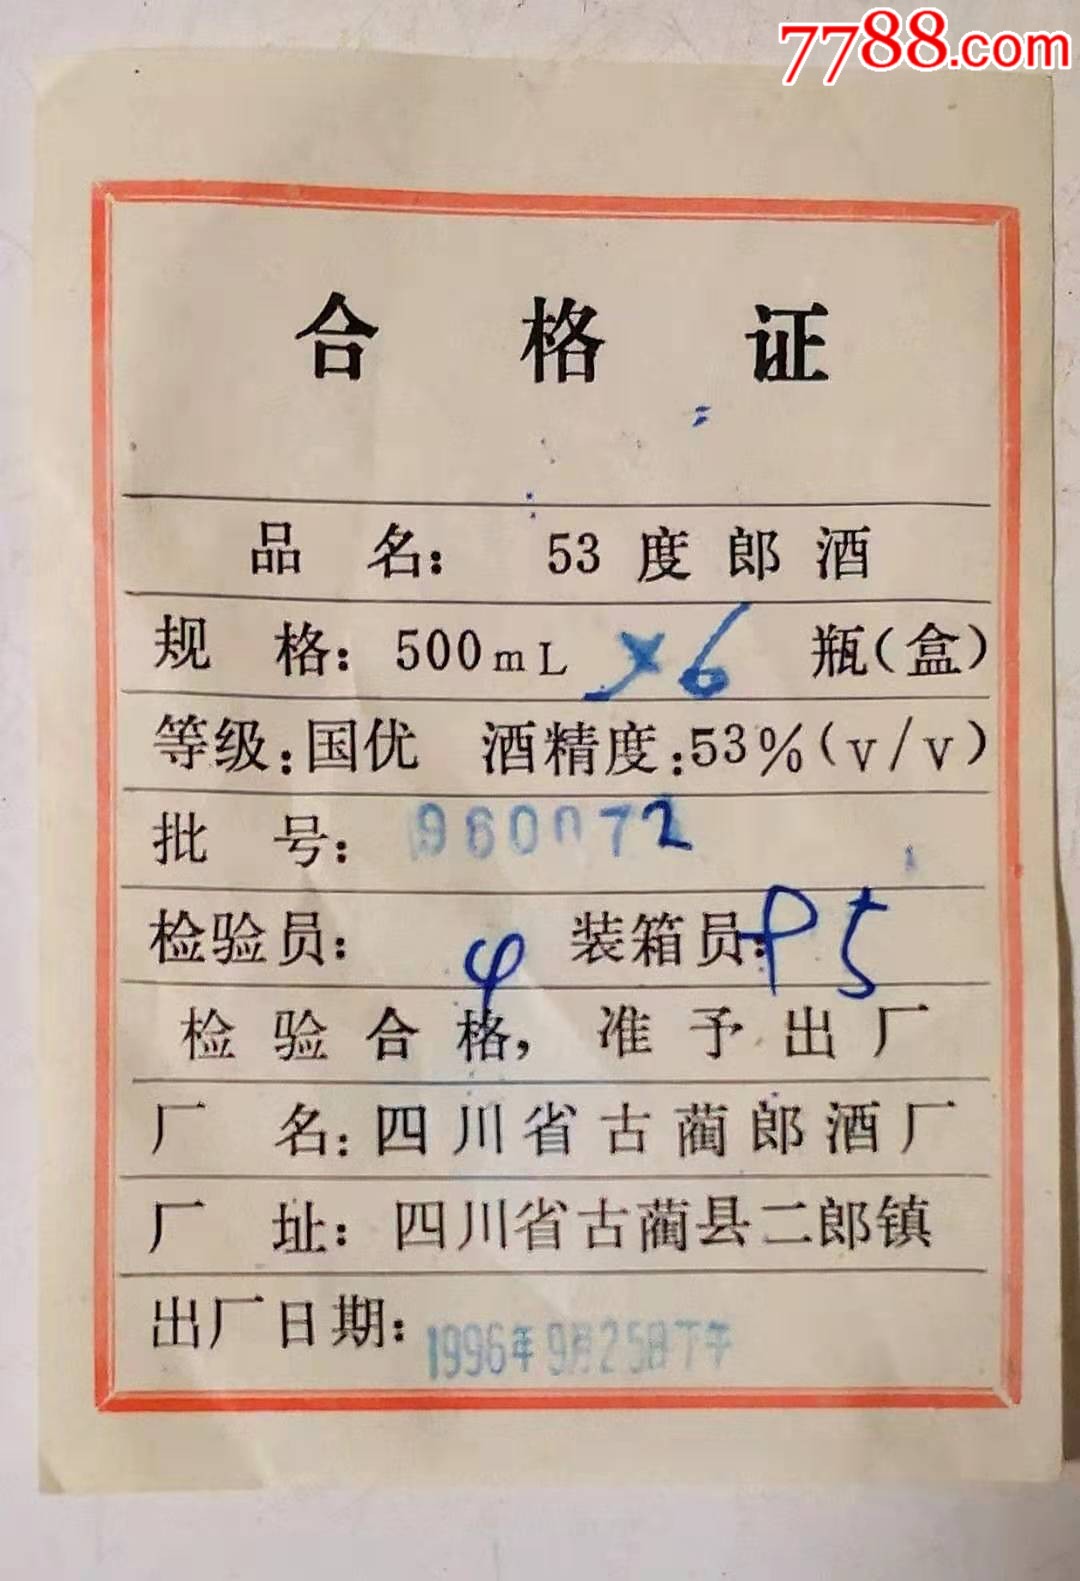 7788.com
合格证
品名：53度郎酒
规格：500mL ×6 瓶(盒)
等级：国优 酒精度：53%(v/v)
批号：960072
检验员：φ 装箱员：P5
检验合格，准予出厂
厂名：四川省古蔺郎酒厂
厂址：四川省古蔺县二郎镇
出厂日期：1996年9月25日下午